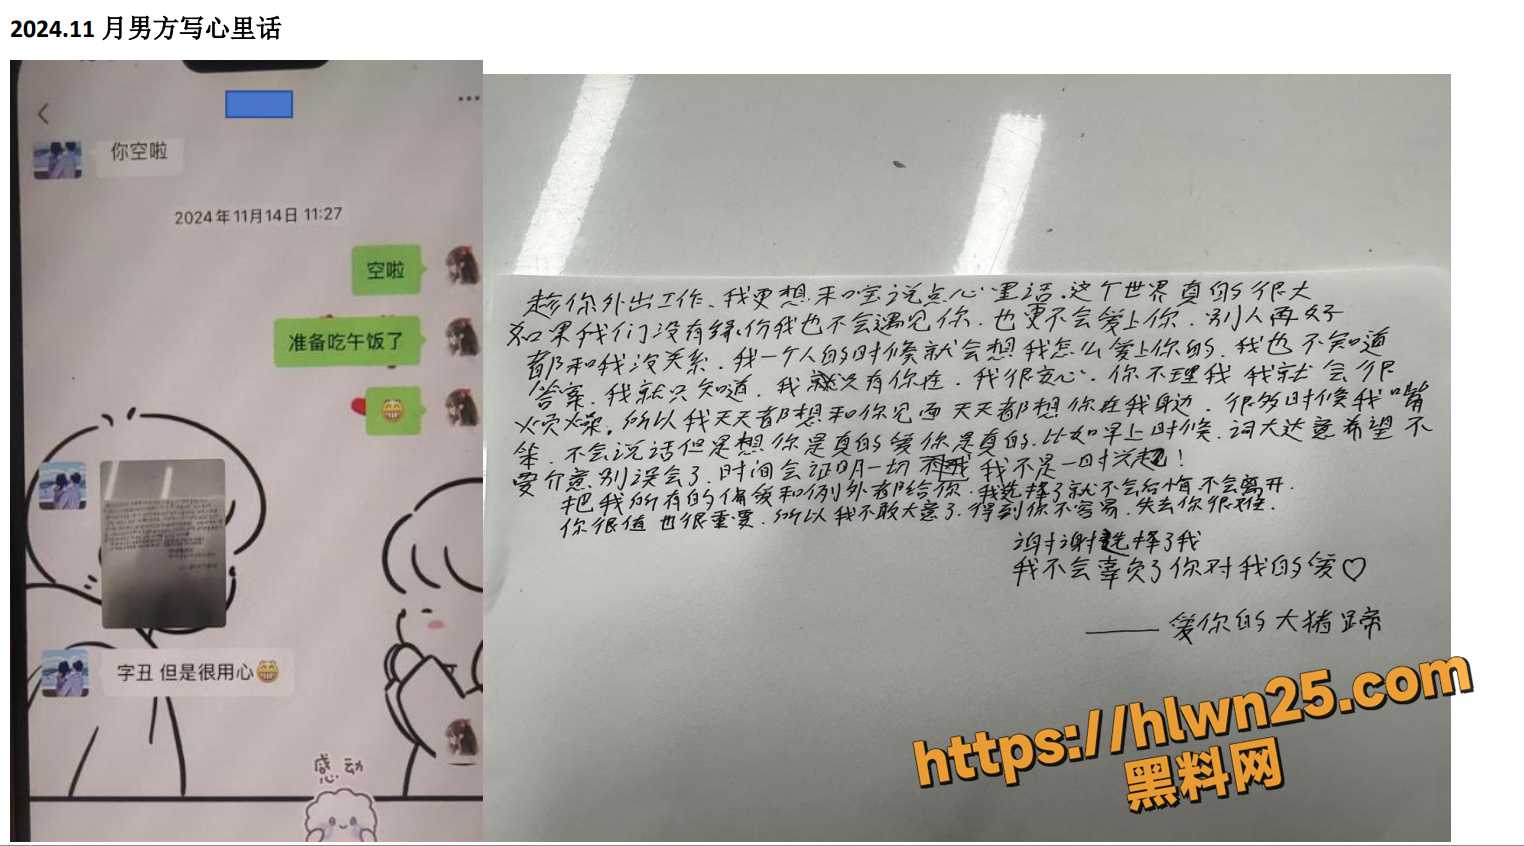 2024.11 月男方写心里话
你空啦
2024年11月14日 11:27
空啦
准备吃午饭了
字丑 但是很用心
感动
趁你外出工作、我更想和你说点心里话.这个世界真的很大
如果我们没有缘份我也不会遇见你.也更不会爱上你.别人再好
都和我没关系.我一个人的时候就会想我怎么爱上你的.我也不知道
答案.我就只知道.我只有你在.我很安心.你不理我我就会很
烦燥。所以我天天都想和你见面天天都想你在我身边.很多时候我嘴
笨.不会说话但是想你是真的爱你是真的.比如早上时候.词大达意希望不
要介意别误会了.时间会证明一切 我不是一时兴起!
把我所有的偏爱和例外都给你.我选择了就不会后悔不会离开.
你很值也很重要.所以我不敢大意了.得到你不容易.失去你很难.
谢谢选择了我
我不会辜负了你对我的爱♡
——爱你的大猪蹄
https://hlwn25.com
黑料网